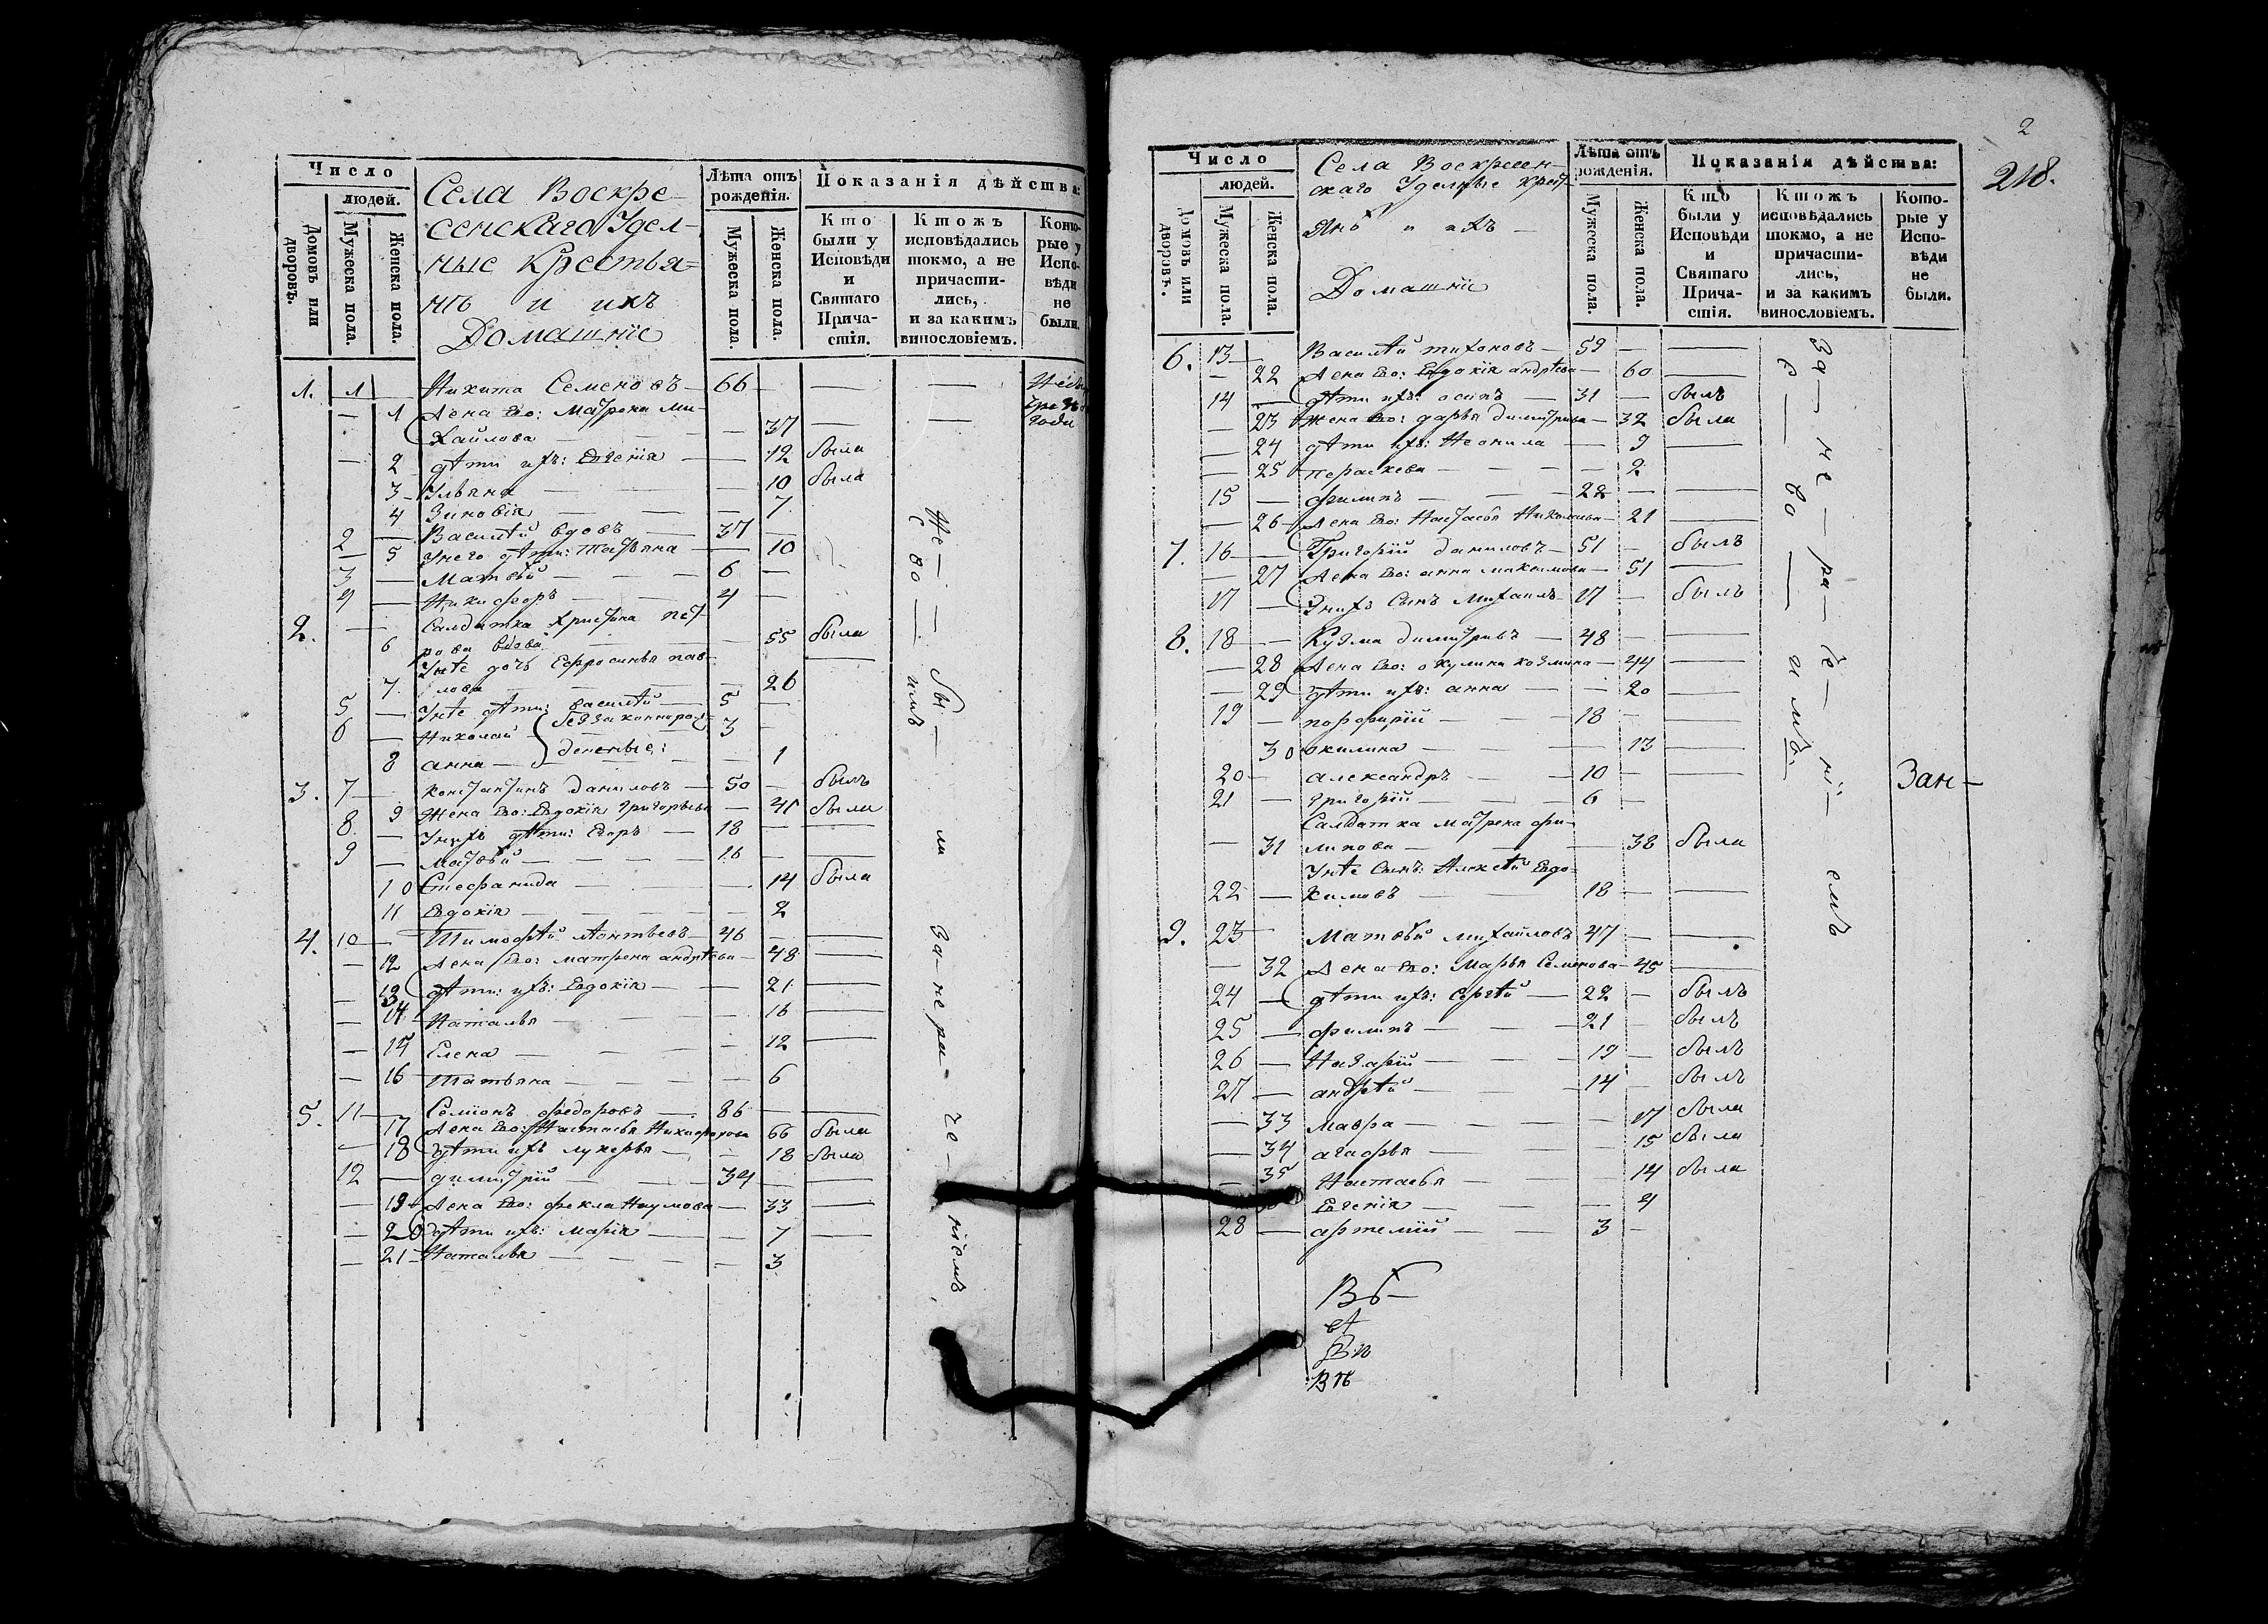 Число
людей.
Домовъ или дворовъ.
Мужеска пола.
Женска пола.
Села Воскре-
сенскаго Удел-
ные Крестья-
не и ихъ
Домашнiе
Лѣта отъ рожденiя.
Мужеска пола.
Женска пола.
Показанiя дѣйства:
Кто были у Исповѣди и Святаго Прича-стiя.
Ктожъ исповѣдались токмо, а не причасти-лись, и за какимъ винословiемъ.
Кото-рые у Испо-вѣди не были.
1. 1 Никита Семеновъ — 66
— 1 Жена Его: Матрена Ми-
хайлова — 37
— 2 дѣти ихъ: Евгенiя — 12 была
3 Ульяна — 10 была
4 Зиновiя — 7
2 — Василiй вдовъ — 37
— 5 Унего дѣти: Татьяна — 10
3 — Матвѣй — 6
4 — Никифоръ — 4
2. — Салдатка Христина Пет-
6 рова вдова — 55 была
Унее дочь Ефросинья пав-
7. лова — 26
5 — Унее дѣти: василiй — 5
6 — Николай — 3
8 анна — 1
незаконнорож-
денные:
3. 7 — Константинъ Даниловъ — 50 — былъ
9 Жена Его: Евдокiя Григорьева — 41 была
8 — Унихъ дѣти: Егоръ — 18
9 — Матвѣй — 16
10 Стефанида — 14 была
11 Евдокiя — 2
4. 10 — Тимофѣй Леонтьевъ — 46
— 12 Жена Его: матрена андрѣева — 48
13 дѣти ихъ: Евдокiя — 21
— 14 Наталья — 16
— 15 Елена — 12
— 16 Татьяна — 6
5. 11 — Семiонъ федоровъ — 86
17 Жена Его: Настасья Никифорова 66 была
— 18 дѣти ихъ лукерья — 18 была
12 — димитрiй — 34
— 19 Жена Его: фекла Наумова — 33
— 20 дѣти ихъ: Марiя — 7
— 21 Наталья — 3
2
218.
Число
людей.
Домовъ или дворовъ.
Мужеска пола.
Женска пола.
Села Воскресен-
скаго Уделные крест-
яне и ихъ —
Домашнiе
Лѣта отъ рожденiя.
Мужеска пола.
Женска пола.
Показанiя дѣйства:
Кто были у Исповѣди и Святаго Прича-стiя.
Ктожъ исповѣдались токмо, а не причасти-лись, и за какимъ винословiемъ.
Кото-рые у Испо-вѣди не были.
6. 13 Василiй тихоновъ — 59
— 22 Жена Его: Евдокiя андрѣева — 60
14 — дѣти ихъ: осипъ — 31 — былъ
— 23 Жена Его: дарья димитрiева — 32 была
— 24 дѣти ихъ: Неонила — 9
— 25 параскева — 2
15 — филипъ — 22
— 26 Жена Его: Настасья Николаева — 21
7. 16 — Григорiй даниловъ — 51 — былъ
— 27 Жена Его: анна максимова — 51
17 — Унихъ Сынъ Михаилъ — 17 — былъ
8. 18 — Кузма димитрiевъ — 48
— 28 Жена Его: окулина козмина — 44
— 29 дѣти ихъ: анна — 20
19 — порфирiй — 18
30 окилина — 13
20 — александръ — 10
21 — григорiй — 6
Салдатка матрена фи-
— 31 липова — 38 была
Унее Сынъ: Алексѣй Евдо-
22 — кимовъ — 18
9. 23 Матвѣй михайловъ 47
— 32 Жена Его: Марья Семенова — 45
24 — дѣти ихъ: Сергѣй — 22 — былъ
25 — филипъ — 21 былъ
26 — Назарiй — 19 — былъ
27 — андрѣй — 14 — былъ
— 33 Мавра — 17 была
— 34 агафья — 15 была
— 35 Настасья — 14 была
Евгенiя — 4
28 — артемiй — 3
Зан —